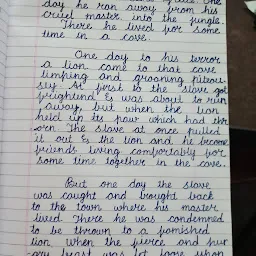 day he ran away from his
cruel master into the jungle
There he lived for some
time in a cave.
One day to his terror
a lion came to that cave
limping and groaning piteou
sly. At first to the slave got
frightend & was about to run
away, but when the lion
held up its paw which had tho
orn The slave at once pulled
it out & the lion and he become
friends living comfortably for
some time together in the cave.
But one day the slave
was caught and brought back
to the town where his master
lived. There he was condemned
to be thrown to a famished
lion. When the fierce and hun
gry beast was let loose upon